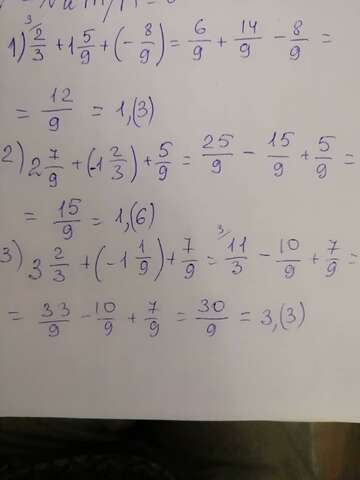 1) 3/ 2/3 + 1 5/9 + (- 8/9) = 6/9 + 14/9 - 8/9 =
= 12/9 = 1,(3)
2) 2 7/9 + (-1 2/3) + 5/9 = 25/9 - 15/9 + 5/9 =
= 15/9 = 1,(6)
3) 3 2/3 + (-1 1/9) + 7/9 = 3/ 11/3 - 10/9 + 7/9 =
= 33/9 - 10/9 + 7/9 = 30/9 = 3,(3)